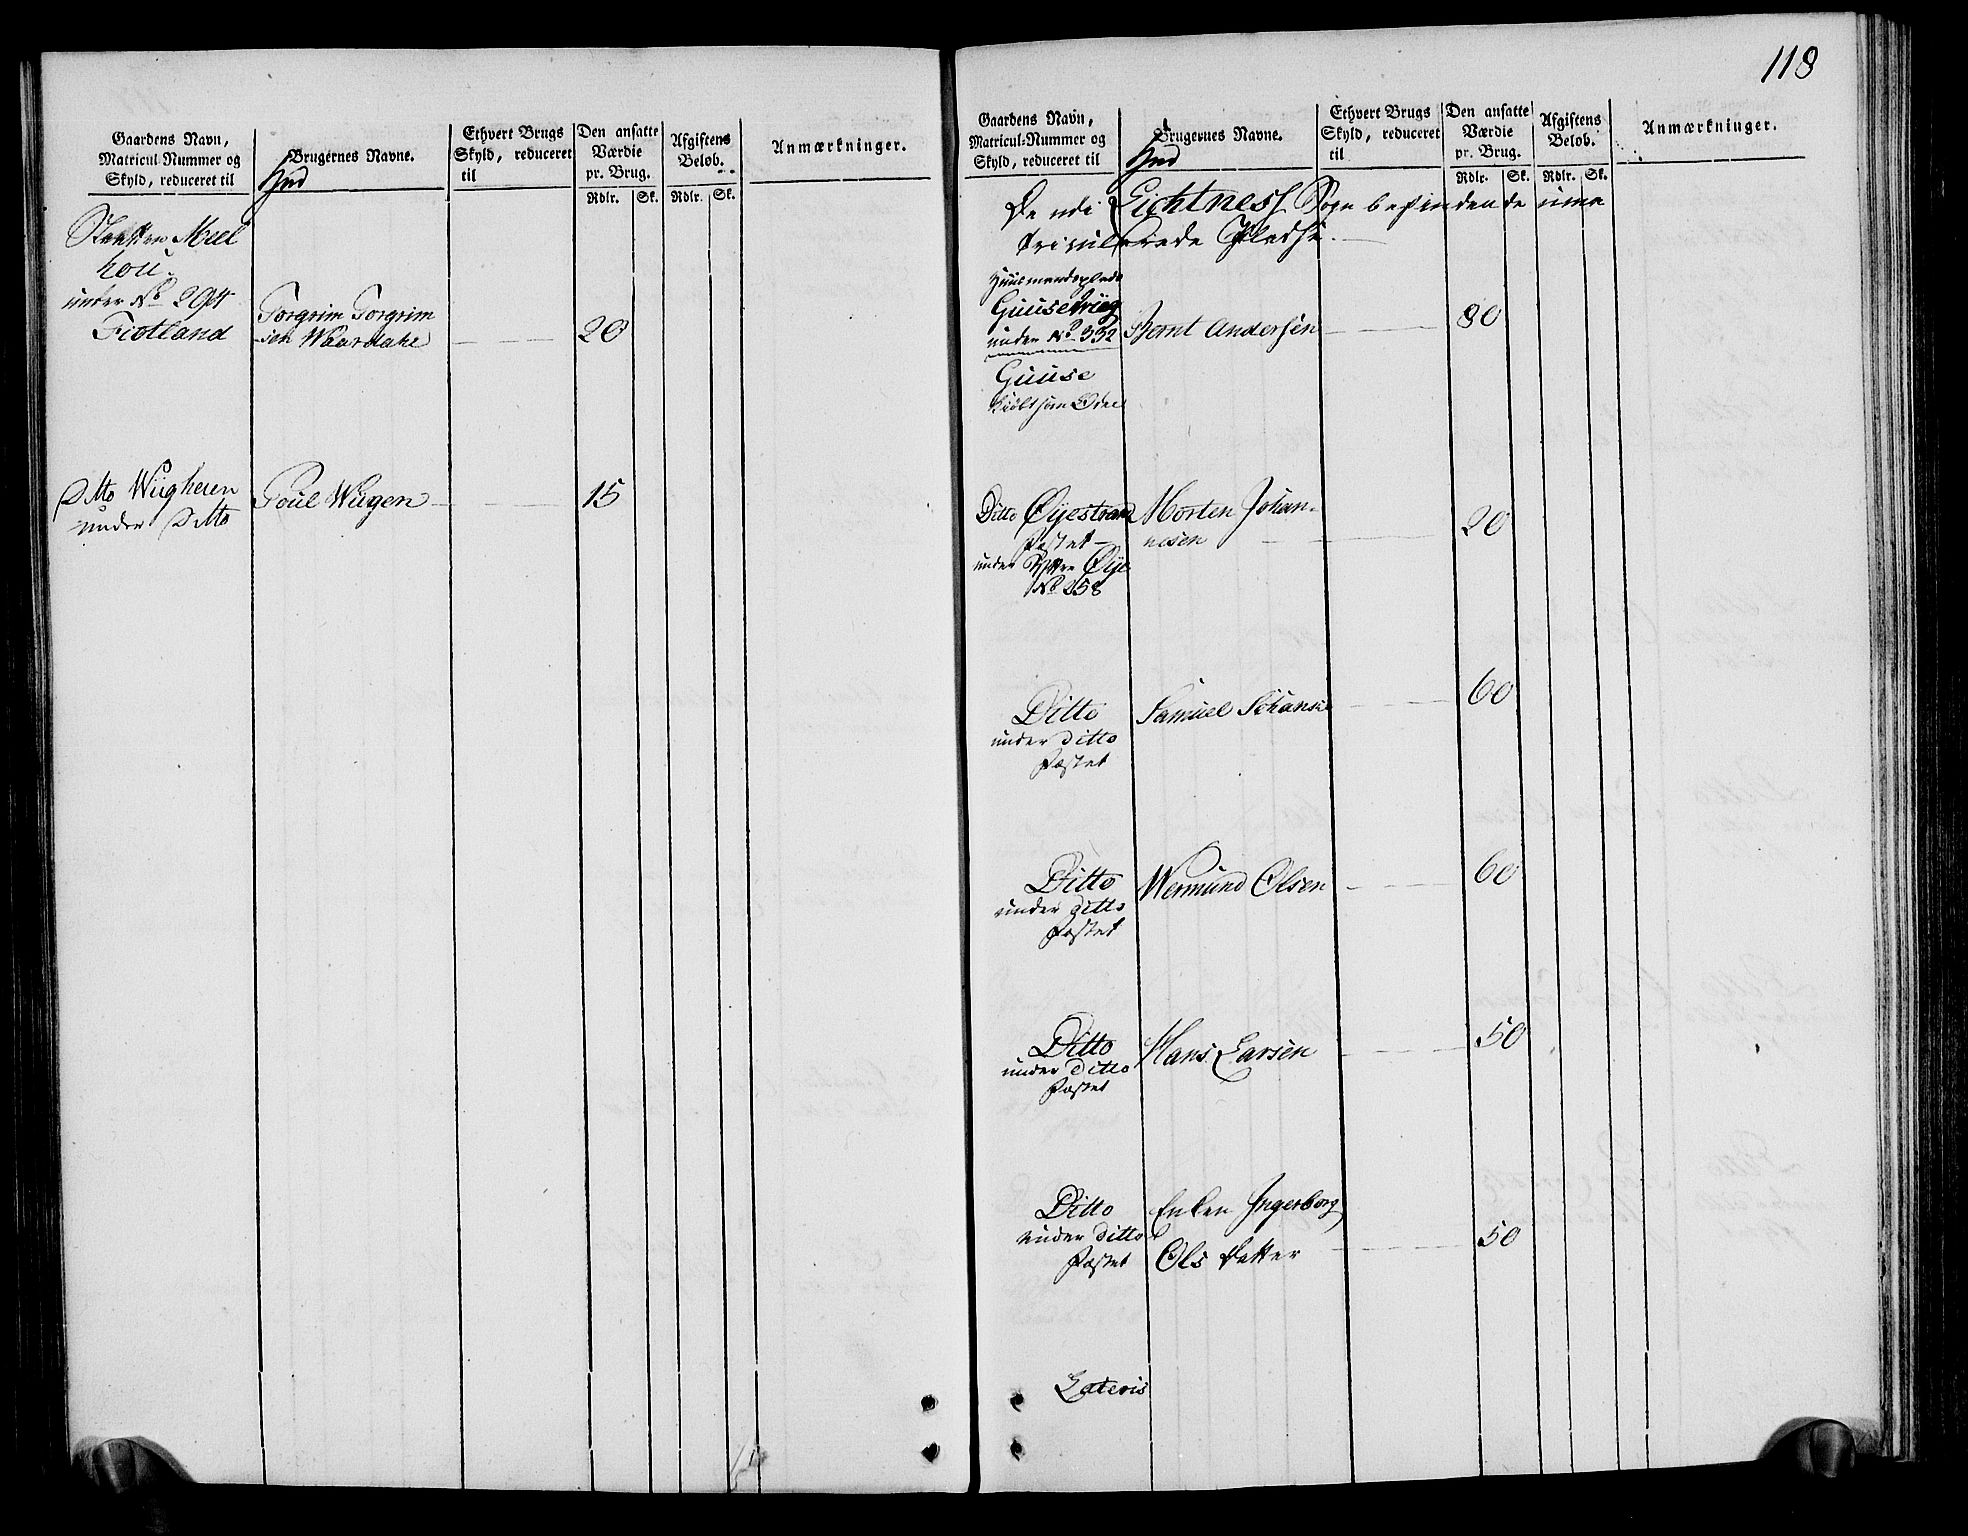 118
Gaardens Navn,
Matricul-Nummer og
Skyld, reduceret til
Brugernes Navne.
Ethvert Brugs
Skyld, reduceret
til
Den ansatte
Værdie
pr. Brug.
Rdlr. Sk.
Afgiftens
Beløb.
Rdlr. Sk.
Anmærkninger.
Meel
hou.
under No 294
Fiotland
Torgrim Torgrim
sen Waardahl
20
Ditto Wügheien
under Ditto
Poul Wügen
15
Gaardens Navn,
Matricul-Nummer og
Skyld, reduceret til
Brugernes Navne.
Ethvert Brugs
Skyld, reduceret
til
Den ansatte
Værdie
pr. Brug.
Rdlr. Sk.
Afgiftens
Beløb.
Rdlr. Sk.
Anmærkninger.
De udi Sogn befindende uma
triculerede Pladse.
Huusmandsplads
under No 332
Bernt Andersen
80
Guuse
Ditto Øyestrand
Fæstet
under Yttre Øye
No 258
Morten Johan-
nesen
20
Ditto
under ditto
Fæstet
Samuel
60
Ditto
under ditto
Fæstet
Wermund Olsen
60
Ditto
under ditto
Fæstet
Hans Larsen
50
Ditto
under ditto
Fæstet
Enken Ingerborg
Ols Datter
50
Lateris